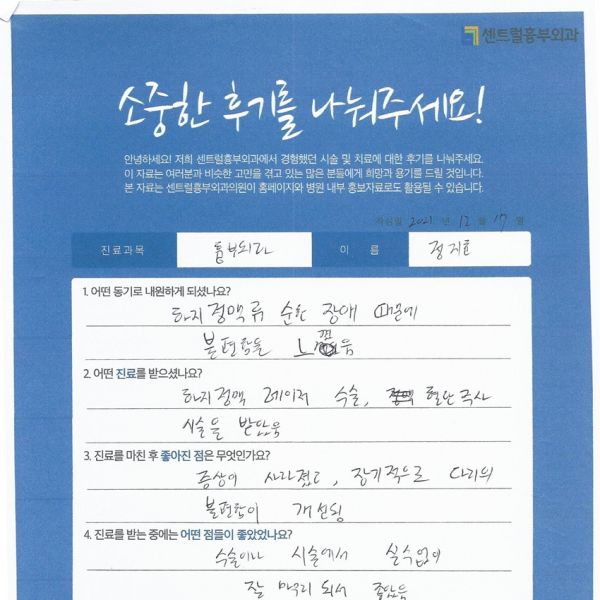 센트럴흉부외과
소중한 후기를 나눠주세요!
안녕하세요! 저희 센트럴흉부외과에서 경험했던 시술 및 치료에 대한 후기를 나눠주세요.
이 자료는 여러분과 비슷한 고민을 겪고 있는 많은 분들에게 희망과 용기를 드릴 것입니다.
본 자료는 센트럴흉부외과의원이 홈페이지와 병원 내부 홍보자료로도 활용될 수 있습니다.
작성일 2021 년 12 월 17 일
진료과목 흉부외과 이 름 정지호
1. 어떤 동기로 내원하게 되셨나요?
하지정맥류 순환 장애 때문에
불편함을 느낌
2. 어떤 진료를 받으셨나요?
하지정맥 레이저 수술, 혈관 주사
시술을 받았음
3. 진료를 마친 후 좋아진 점은 무엇인가요?
증상이 사라졌고, 장기적으로 다리의
불편함이 개선됨
4. 진료를 받는 중에는 어떤 점들이 좋았었나요?
수술이나 시술에서 실수없이
잘 마무리 되서 좋았음